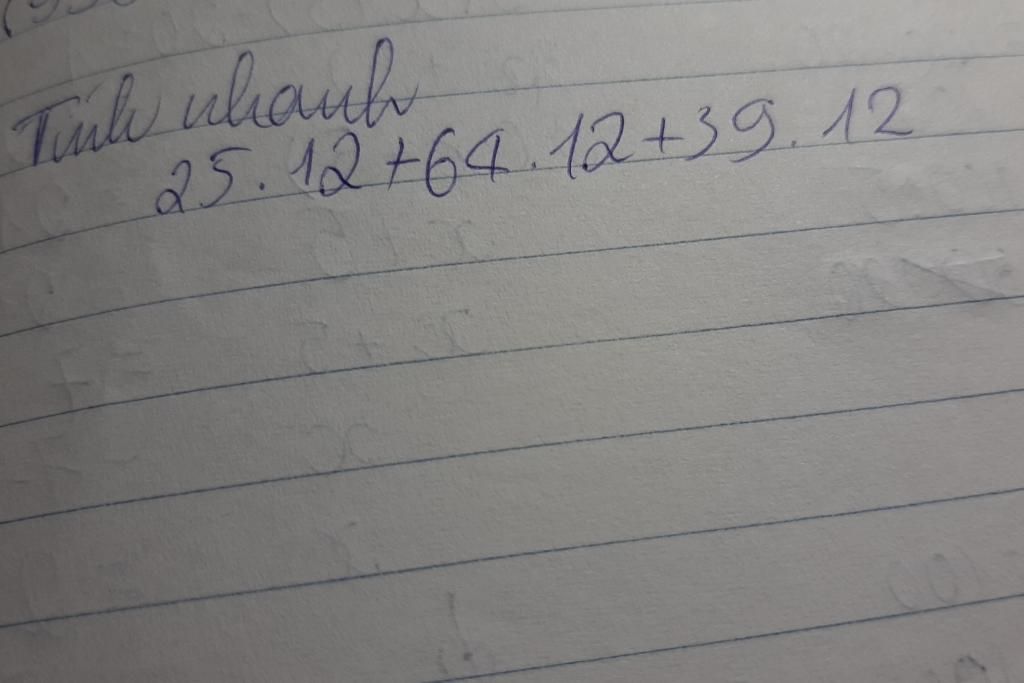 Tính nhanh
25.12+64.12+39.12